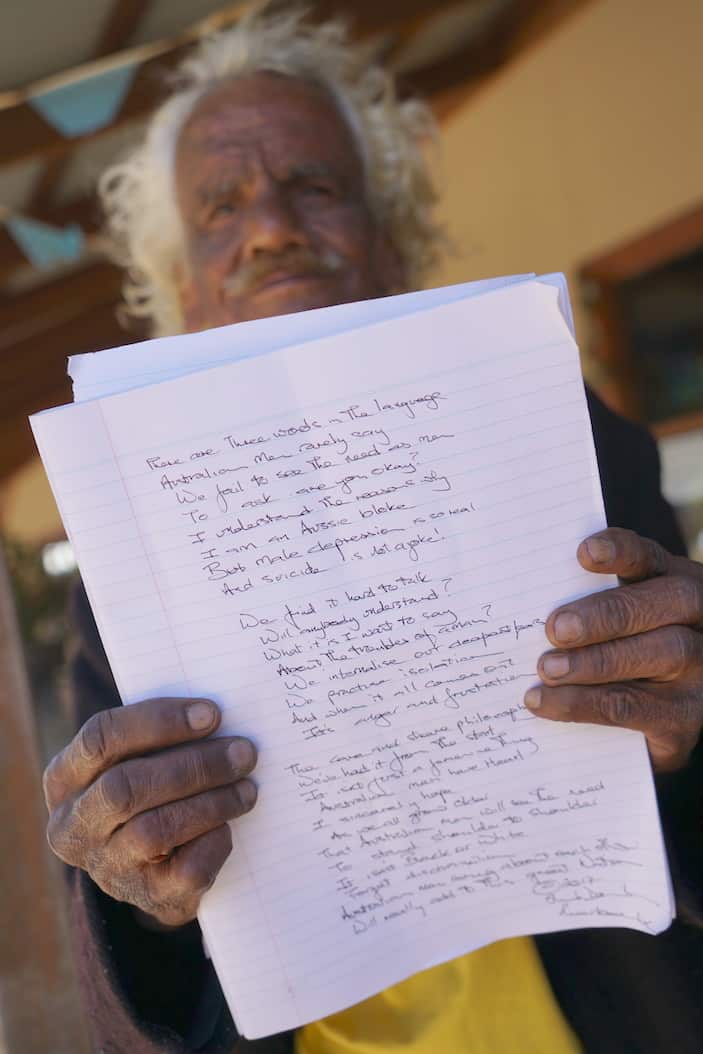 There are Three words in the language
Australian Men rarely say
We fail to see the need as men
To ask are you okay?
I understand the reasons why
I am an Aussie bloke
But Male depression is so real
And suicide is not a joke!
We find it hard to talk
Will anybody understand?
What it is I want to say
About the troubles of a man?
We internalise our deepest pains
We practise isolation
And when it all comes out
It's anger and frustration
The care and share philosophy
We've had it from the start
It isn't just a feminine Thing
Australian men have Heart
I sincerely hope
As we all grow older
That Australian men will see the need
To stand shoulder to shoulder
It isn't Black or White
Forget discrimination
Australian men caring about each other
Will really add to This great Nation